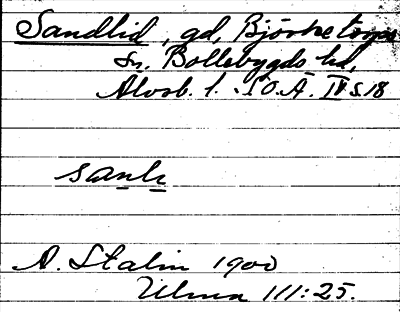 Sandlid, gd, Björketorps
sn, Bollebygds hd,
Älvsb. l. SOÄ IV s. 18
sanlı
A. Stalin 1900
Ulma 111:25.